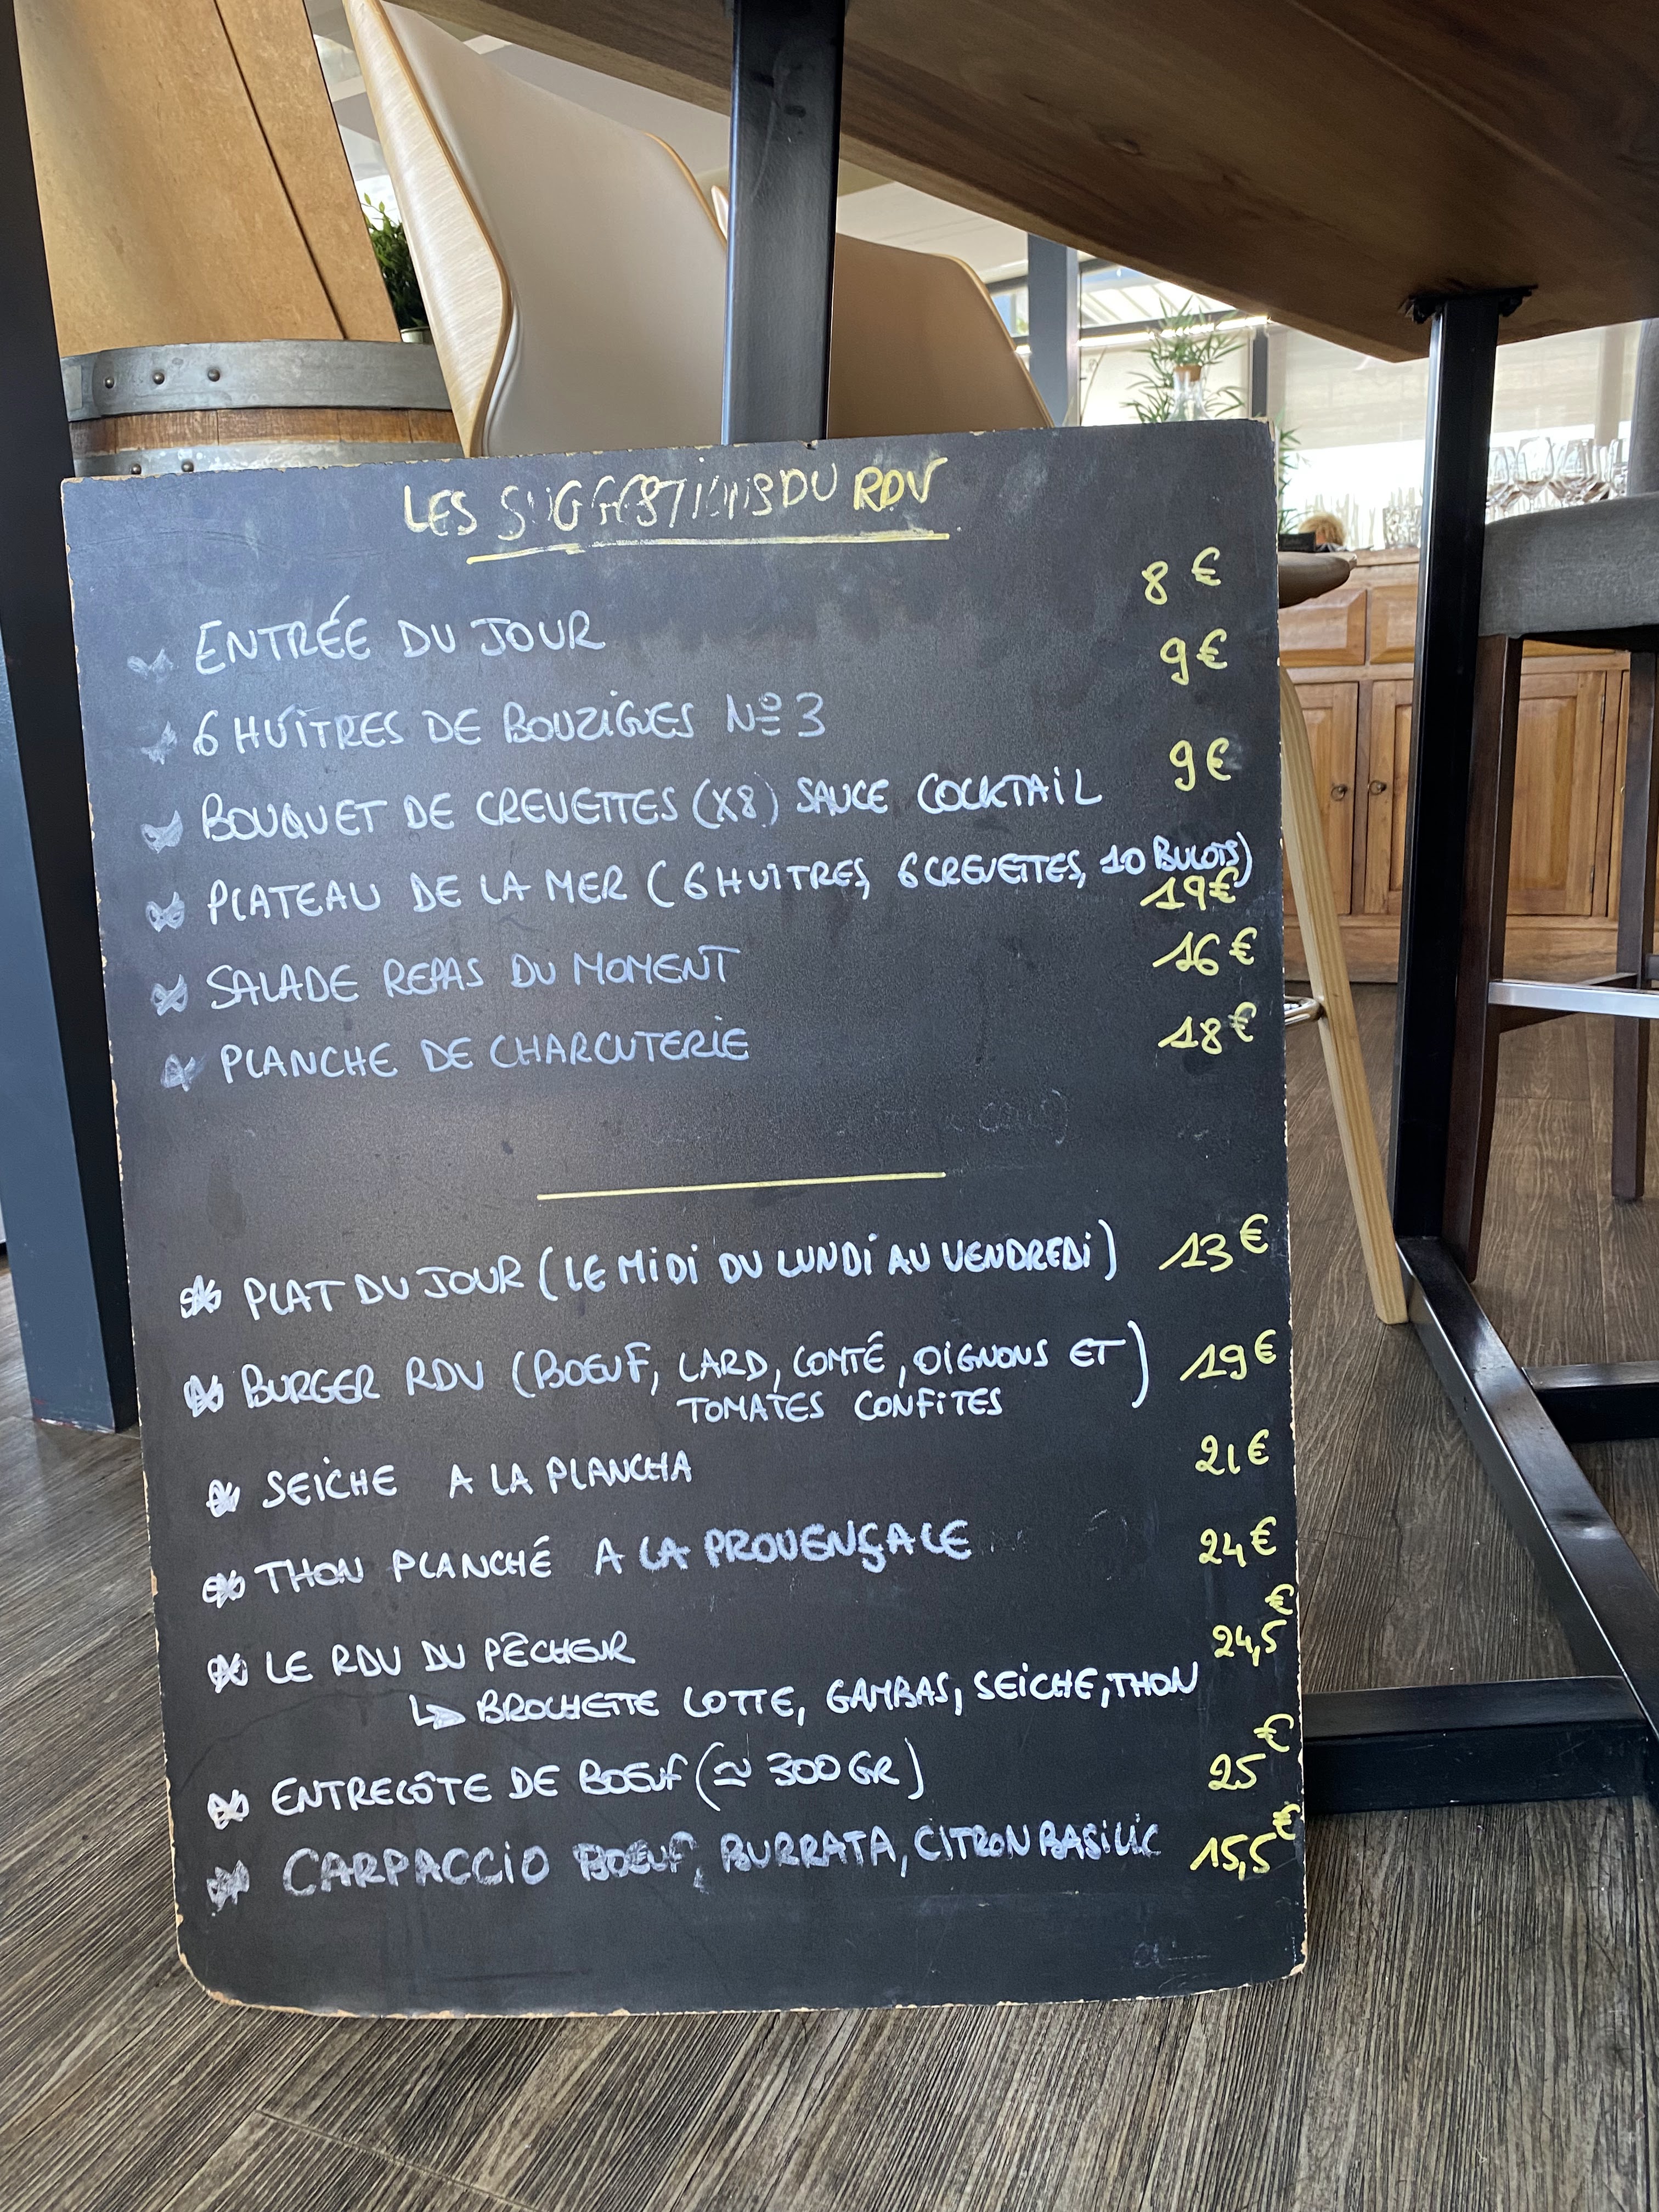 LES SUGGESTIONS DU RDV
ENTRÉE DU JOUR 8 €
6 HUÎTRES DE BOUZIGUES N° 3 9 €
BOUQUET DE CREVETTES (X8) SAUCE COCKTAIL 9 €
PLATEAU DE LA MER (6 HUITRES, 6 CREVETTES, 10 BULOTS)
19 €
SALADE REPAS DU MOMENT 16 €
PLANCHE DE CHARCUTERIE 18 €
PLAT DU JOUR (LE MIDI DU LUNDI AU VENDREDI) 13 €
BURGER RDV (BOEUF, LARD, COMTÉ, OIGNONS ET 19 €
TOMATES CONFITES)
SEICHE A LA PLANCHA 21 €
THON PLANCHÉ A LA PROVENÇALE 24 €
LE RDV DU PÊCHEUR 24,5 €
↳ BROCHETTE LOTTE, GAMBAS, SEICHE, THON
ENTRECÔTE DE BOEUF (≃ 300 GR) 25 €
CARPACCIO BOEUF, BURRATA, CITRON BASILIC 15,5 €